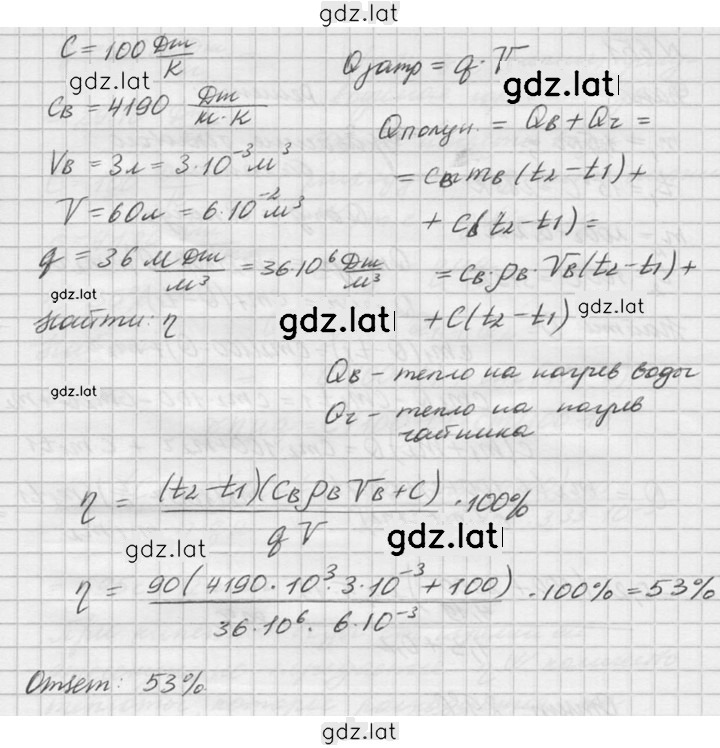 gdz.lat
C = 100 Дж/К
gdz.lat
Cв = 4190 Дж/(м·К)
Vв = 3л = 3·10⁻³м³
V = 60л = 6·10⁻²м³
q = 36 мДж/м³ = 36·10⁶ Дж/м³
gdz.lat
найти: η
gdz.lat
Qзатр = q·V
gdz.lat
Qполуч. = Qв + Qг =
= cвmв(t2-t1)+
+ C(t2-t1)=
= cв·ρв·Vв(t2-t1)+
+ C(t2-t1)
gdz.lat
gdz.lat
Qв - тепло на нагрев воды
Qг - тепло на нагрев
чайника
η = (t2-t1)(cвρвVв+C)/qV ·100%
gdz.lat
gdz.lat
η = 90(4190·10³·3·10⁻³+100)/36·10⁶·6·10⁻³ ·100% = 53%
Ответ: 53%
gdz.lat